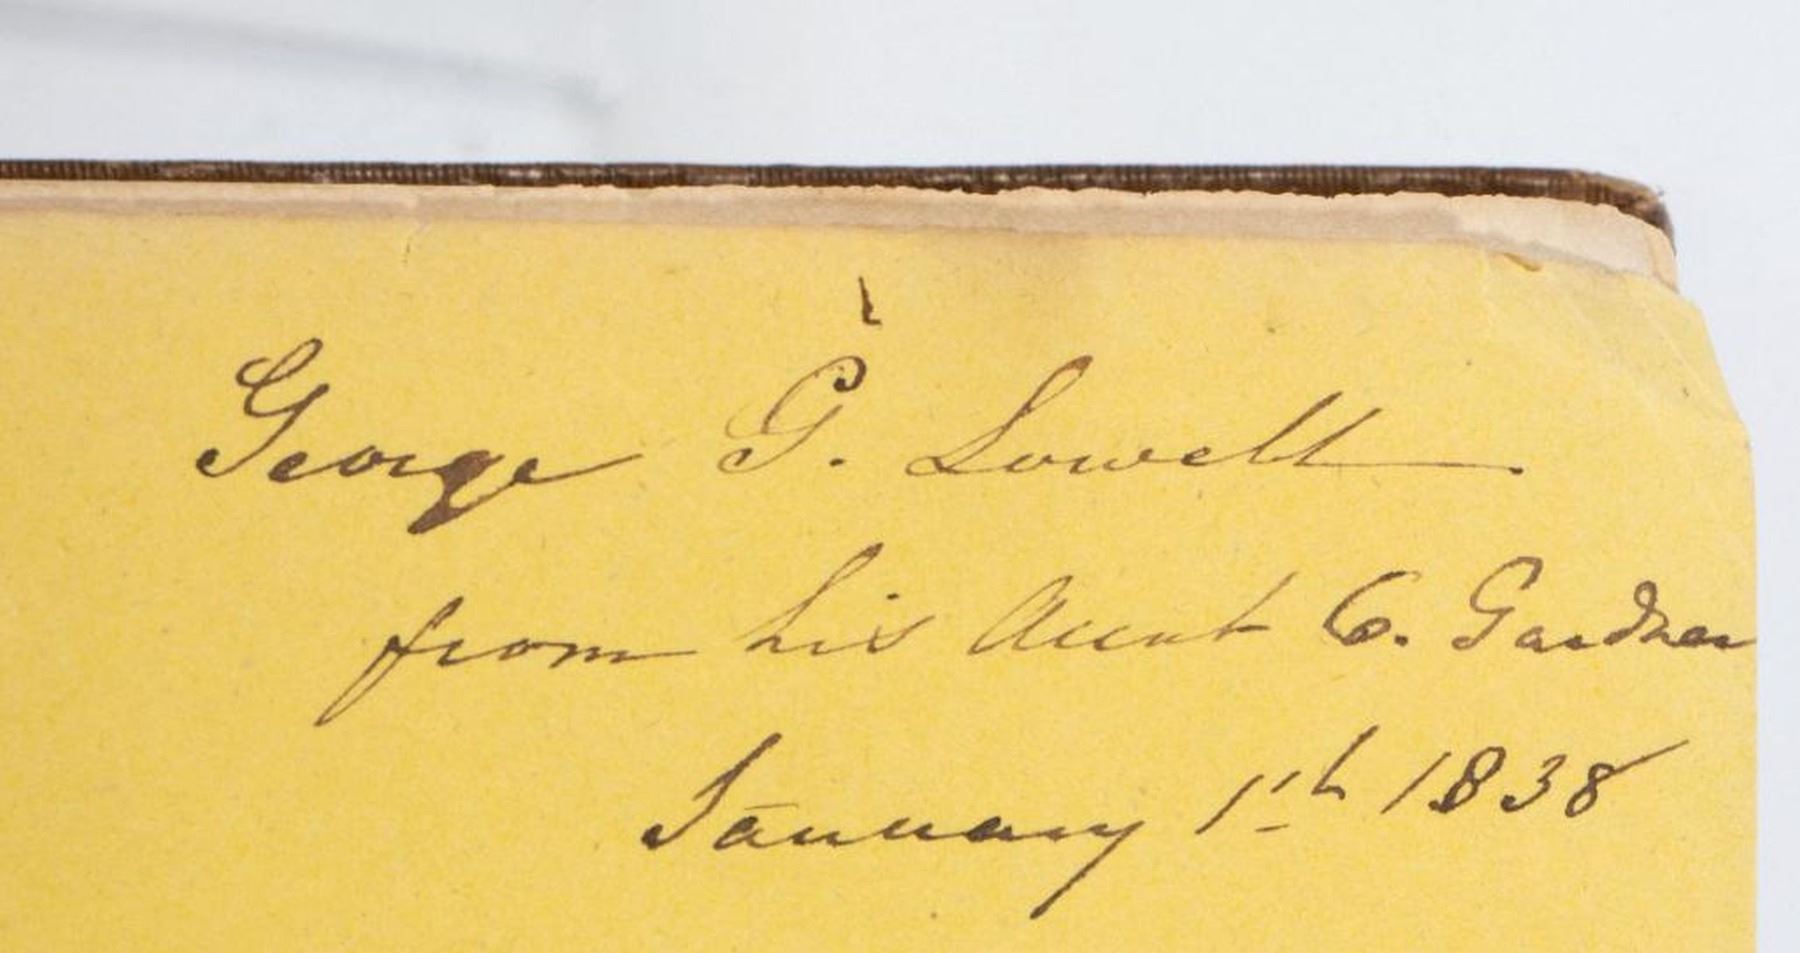 George G. Lowell
from his Aunt C. Gardner
January 1th 1838